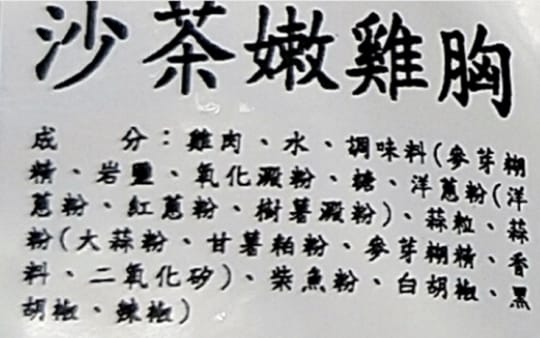 沙茶嫩雞胸
成　　分：雞肉、水、調味料(麥芽糊
精、岩鹽、氧化澱粉、糖、洋蔥粉(洋
蔥粉、紅蔥粉、樹薯澱粉)、蒜粒、蒜
粉(大蒜粉、甘薯粕粉、麥芽糊精、香
料、二氧化矽)、柴魚粉、白胡椒、黑
胡椒、辣椒)